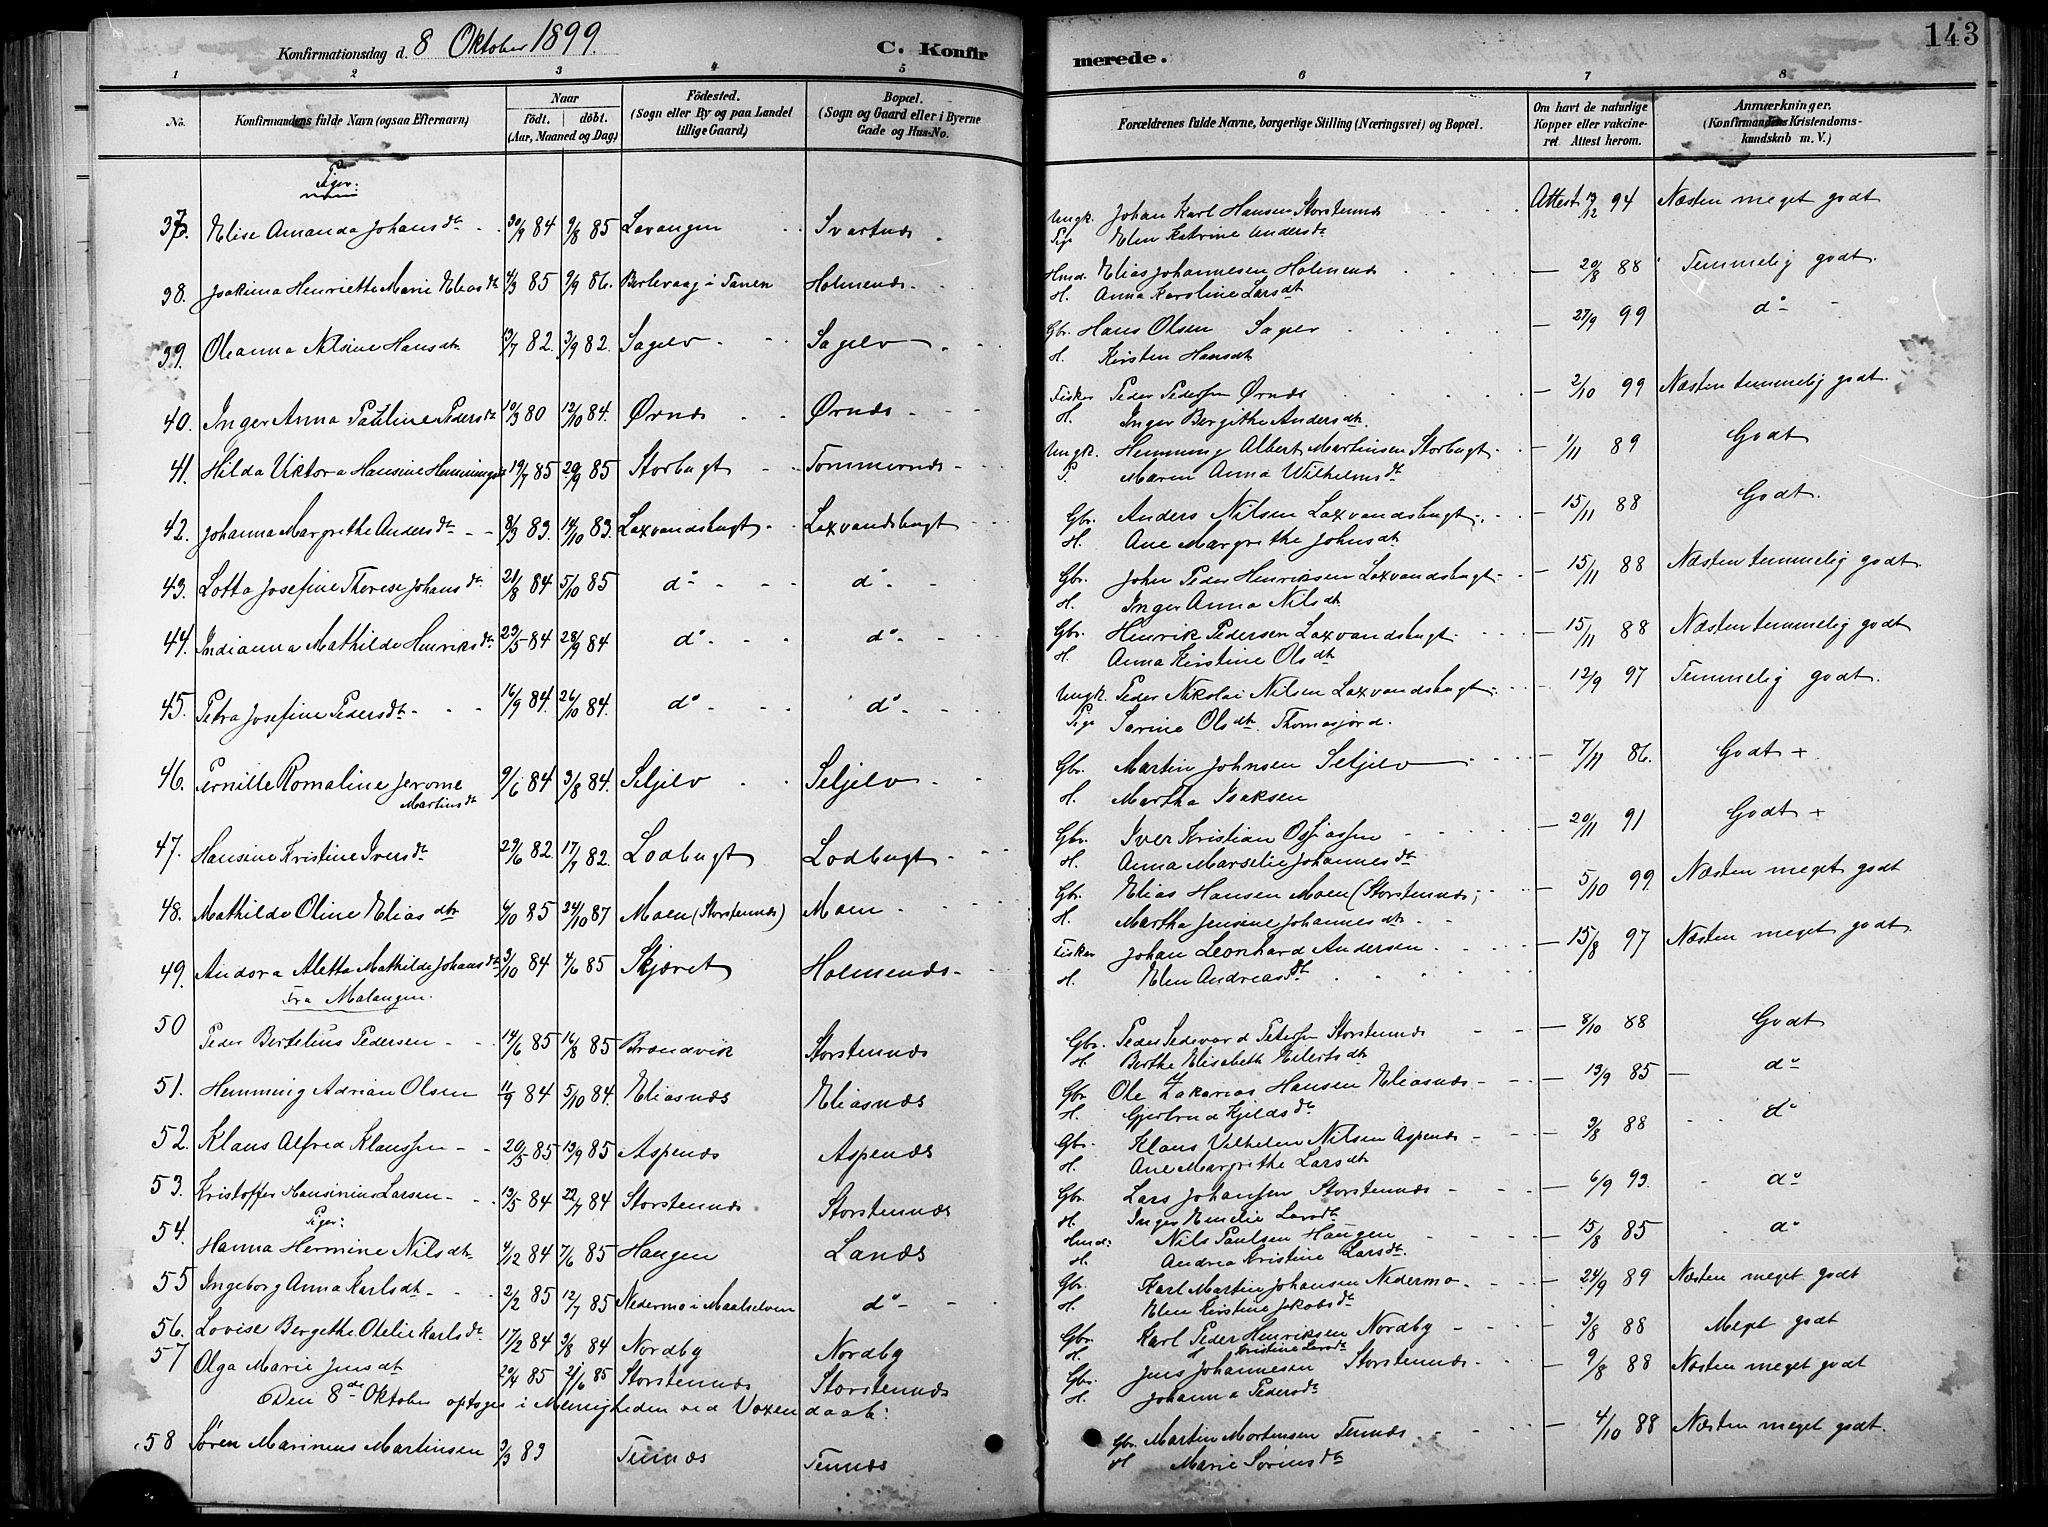 Konfirmationsdag d. 8 Oktober 1899. C. Konfirmerede. 143
1 2 3 4 5 6 7 8
No. Konfirmandens fulde Navn (ogsaa Efternavn) Naar Født. døbt. (Aar, Maaned og Dag) Fødested. (Sogn eller By og paa Landet tillige Gaard) Bopæl. (Sogn og Gaard eller i Byerne Gade og Hus-No. Forældrenes fulde Navne, borgerlige Stilling (Næringsvei) og Bopæl. Om havt de naturlige Kopper eller vakcineret Attest herom. Anmærkninger. (Konfirmandens Kristendomskundskab m. V.)
Piger:
37. Elise Amanda Johansdtr 30/9 84 9/8 85 Lavangen Svartnæs Ungk. Johan Karl Hansen Storstennæs Attest 13/12 94 Næsten meget godt
Pige Elen Katrine Andersdt
38. Joakima Henriette Marie Eliasdt 4/3 85 9/9 86. Berlevaag i Tanen Holmenæs Hmd. Elias Johannesen Holmenæs — 20/8 88 Temmelig godt.
H. Anna Karoline Larsdt
39. Oleanna Nilsine Hansdt 13/7 82. 3/9 82. Sagelv Sagelv Gbr. Hans Olsen Sagelv — 27/9 99 do
H. Kirsten Hansdt
40. Inger Anna Pauline Pedersdt 10/3 80 12/10 84. Ørnæs Ørnæs Fisker Peder Pedersen Ørnæs — 2/10 99 Næsten temmelig godt.
H. Inger Bergithe Andersdt.
41. Hilda Viktora Hansine Hemmingsdt 19/7 85 20/9 85 Storbugt Tommernæs Ungk. Hemming Albert Martinsen Storbugt — 1/11 89 Godt
P. Maren Anna Wilhelmsdt
42. Johanna Margrethe Andersdt 8/3 83. 14/10 83. Laxvandsbugt Laxvandsbugt Gbr. Anders Nilsen Laxvandsbugt — 15/11 88 Godt.
H. Ane Margrethe Johnsdt
43. Lotta Josefine Therese Johansdt 21/8 84 5/10 85 do do Gbr. Johan Peder Henriksen Laxvandsbugt — 15/11 88 Næsten temmelig godt.
H. Inger Anna Nilsdt
44. Indianna Mathilde Henriksdt 23/5 84 28/9 84 do do Gbr. Henrik Pedersen Laxvandsbugt — 15/11 88 Næsten temmelig godt
H. Anna Kirstine Olsdt
45. Petra Josefine Pedersdt 16/9 84. 26/10 84. do do Ungk. Peder Nikolai Nilsen Laxvandsbugt — 12/9 97 Temmelig godt.
Pige Sarine Olsdt. Thomasjord.
46. Pernille Romaline Jerome Martinsdt 9/6 84 3/8 84. Seljelv Seljelv Gbr. Martin Johnsen Seljelv — 7/11 86. Godt +
H. Martha Isaksen
47. Hansine Kristine Iversdt 29/6 82. 17/7 82. Lodbugt Lodbugt Gbr. Iver Kristian Ossiassen — 20/11 91 Godt +
H. Anna Marselie Johannesdt
48. Mathilde Oline Eliasdtr 4/10 85 24/10 87 Moen (Storstennæs) Moen Gbr. Elias Hansen Moen (Storstennæs; — 5/10 99. Næsten meget godt
H. Martha Jensine Johannesdt
49. Andora Aletta Mathilde Johansdt 3/10 84 4/6 85 Skjæret Holmenæs Fisker Johan Leonhard Andersen — 15/8 97 Næsten meget godt
H. Elen Andreasdt
Fra Malangen.
50 Peder Bertelius Pedersen 14/6 85 16/8 85 Brændvik Storstennæs Gbr. Peder Sedevard Petersen Storstennæs — 8/10 88 Godt
H. Berthe Elisabeth Eilertsdt
51. Hemming Adrian Olsen 11/9 84 5/10 84. Eliasnæs Eliasnæs Gbr Ole Zakarias Hansen Eliasnæs — 13/9 85 — do
H. Gjertrud Kjeldsdt
52. Klaus Alfred Klaussen 20/5 85 13/9 85 Aspenæs Aspenæs Gbr. Klaus Vilhelm Nilsen Aspenæs — 3/8 88 do
H. Ane Margrethe Larsdt
53. Kristoffer Hansinius Larsen 13/5 84 22/7 84 Storstennæs Storstennæs Gbr. Lars Johansen Storstennæs — 6/9 93. do
H. Inger Emelie Larsdt
Piger:
54. Hanna Hermine Nilsdt 4/12 84 7/6 85 Haugen Lanæs Hmd: Nils Paulsen Haugen — 15/8 85 do
H. Andrea Kristine Larsdt.
55 Ingeborg Anna Karlsdt 2/2 85 12/7 85 Nedermo i Maalselven do Gbr. Karl Martin Johansen Nedermo — 24/9 89 Næsten meget godt
H. Elen Kirstine Jakobsdt
56. Lovise Bergethe Otelie Karlsdt 17/2 84 3/8 84 Nordby Nordby Gbr. Karl Peder Henriksen Nordby — 3/8 88 Meget godt
H. Kristine Larsdt
57 Olga Marie Jensdt 20/4 85 21/6 85 Storstennæs Storstennæs Gbr. Jens Johannesen Storstennæs — 9/8 88 Næsten meget godt
H. Johanna Pedersdt
Den 8de Oktober optoges i Menigheden ved Voxendaab:
58 Søren Marineus Martinsen 3/3 83 Tennæs Tennæs Gbr. Martin Mortensen Tennæs — 4/10 88 Næsten meget godt.
H Marie Sørensdt